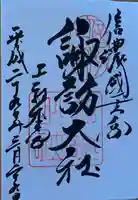 信濃國一之宮
諏訪大社
上社本宮
平成二十九年三月二十七日